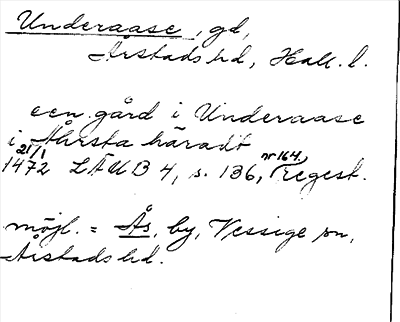 Underaase, gd,
Årstads hd, Hall. l.
een gård i Underaase
i Ahrsta häradt
21/1
1472 LÄUB 4, s. 136, nr 164, regest.
möjl. = Ås, by, Vessige sn,
Årstads hd.